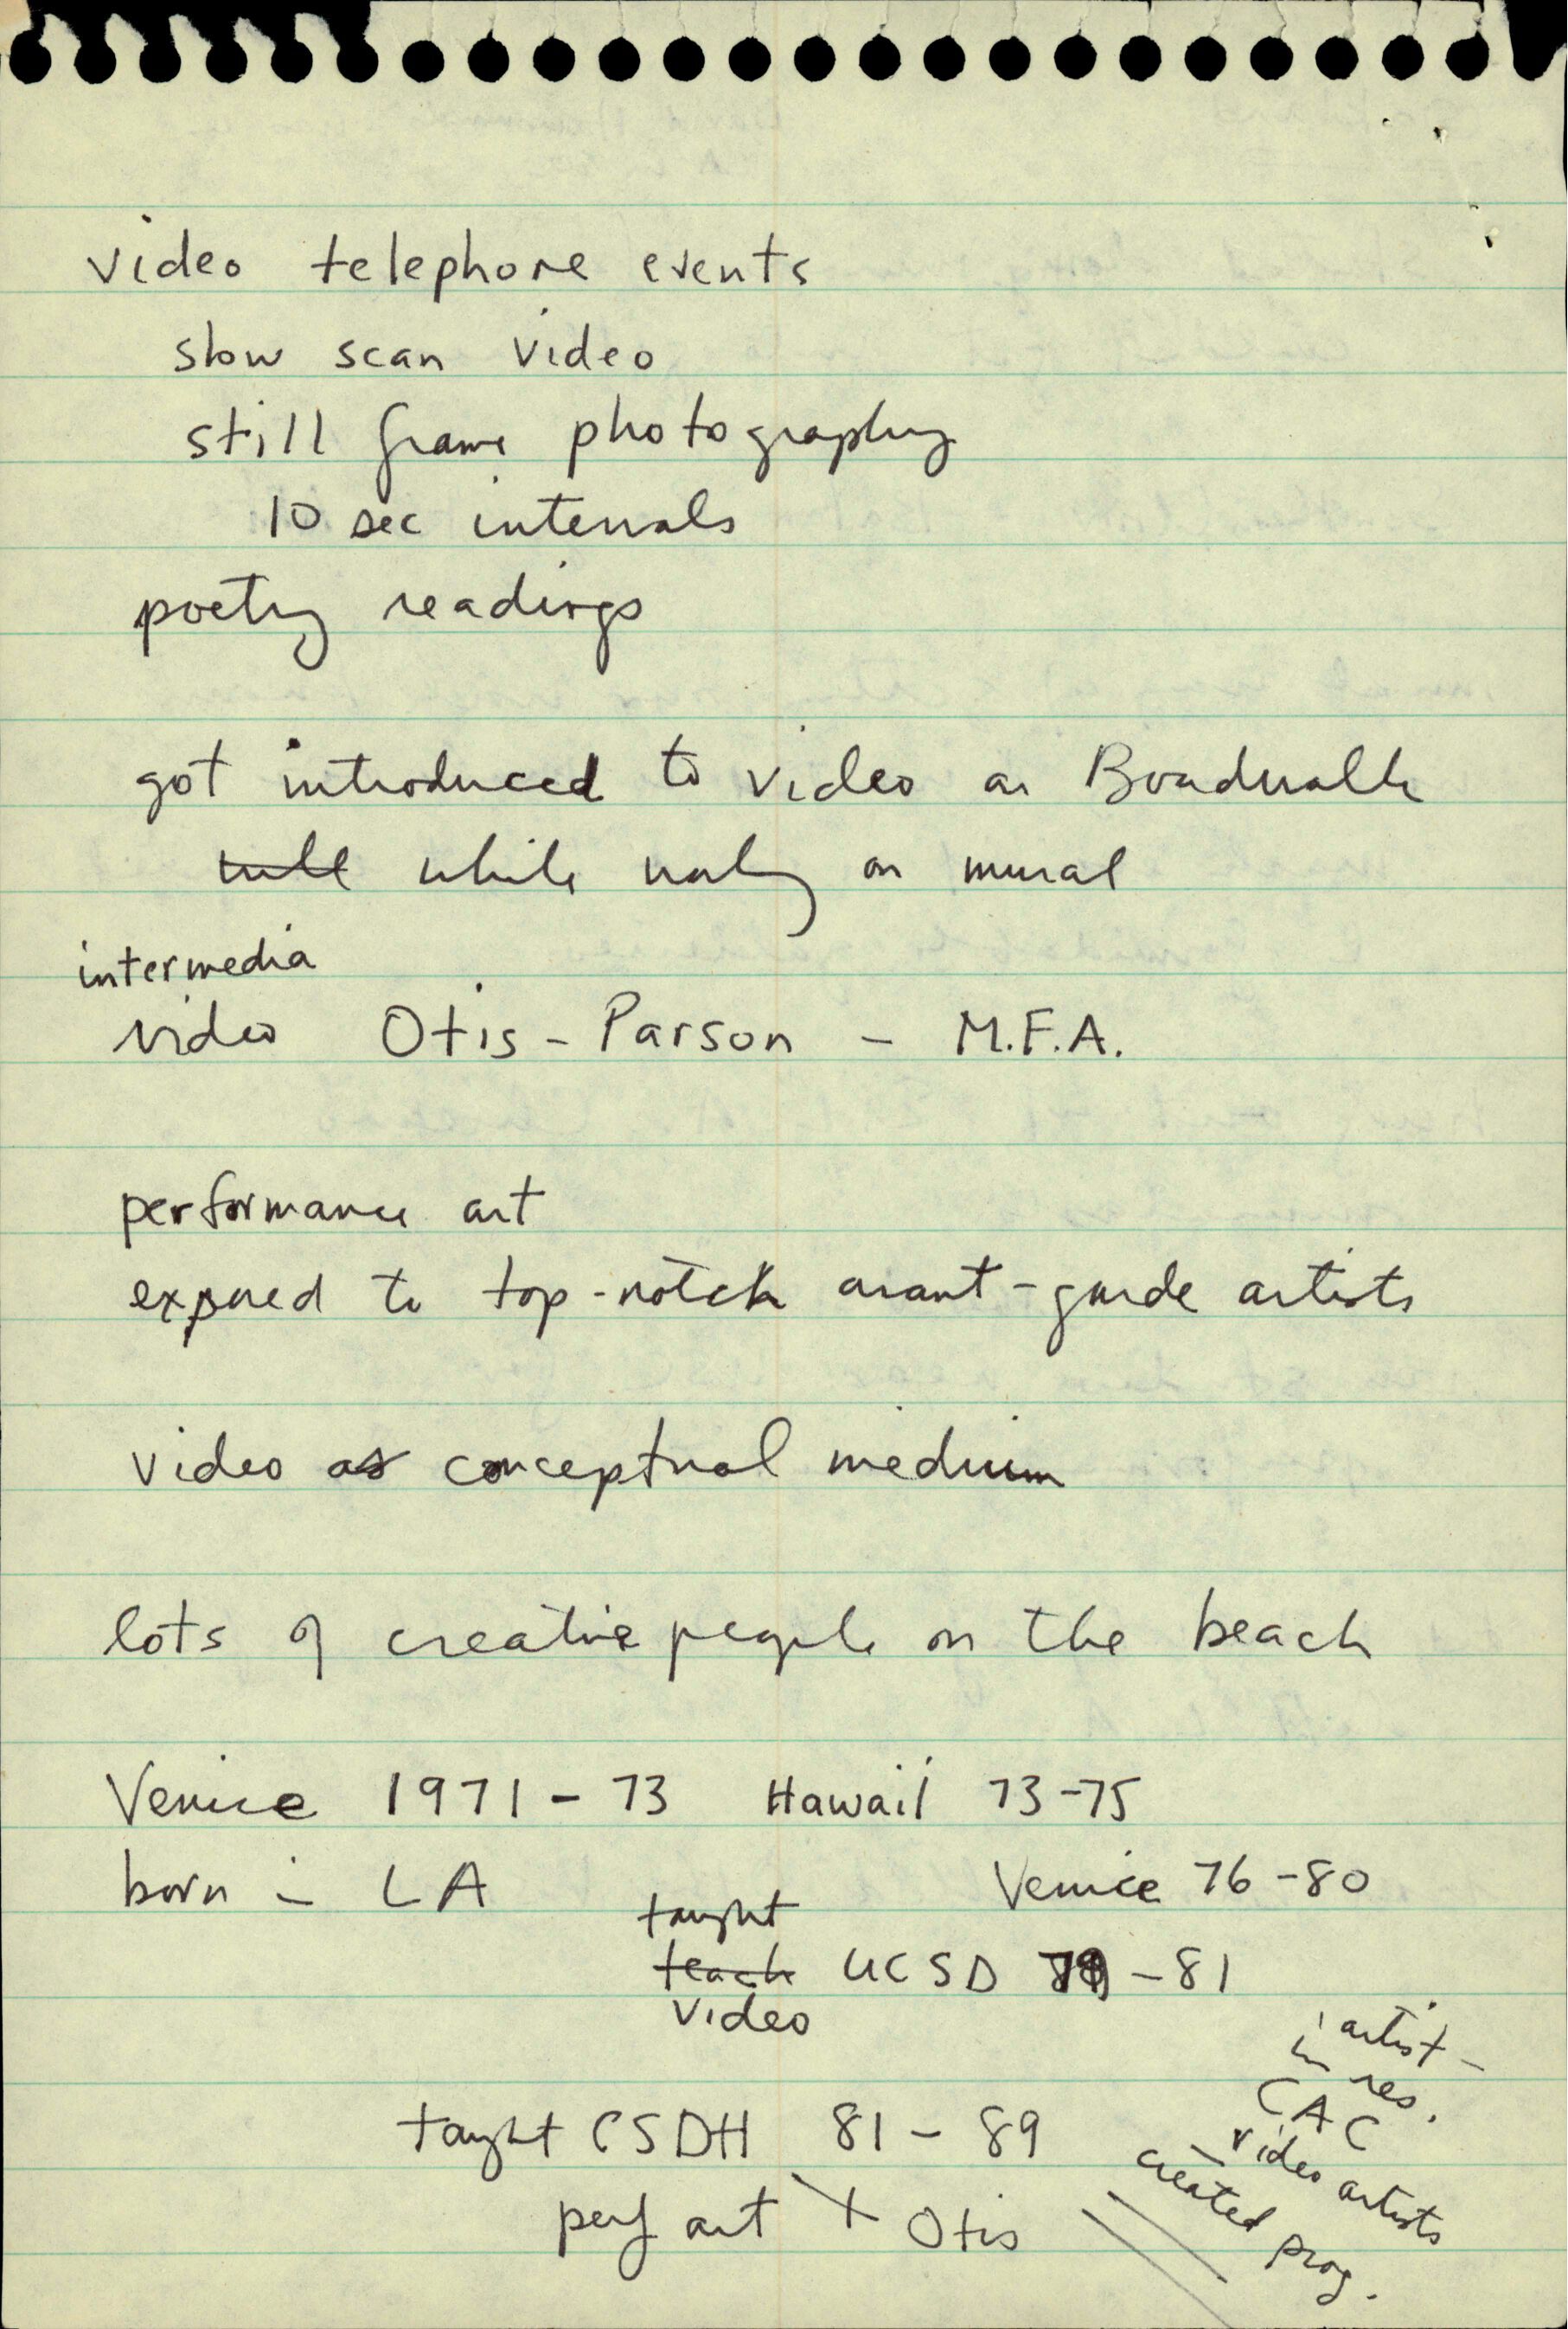 video telephone events
slow scan video
still frame photography
10 sec intervals
poetry readings
got introduced to video on Boardwalk
while working on mural
intermedia
video Otis - Parson - M.F.A.
performance art
exposed to top-notch avant-garde artists
video as conceptual medium
lots of creative people on the beach
Venice 1971 - 73 Hawaii 73-75
born in LA Venice 76-80
taught
teach UCSD 79 - 81
video
taught CSDH 81 - 89
perf art + Otis
artist-
in res.
CAC
video artists
created prog.